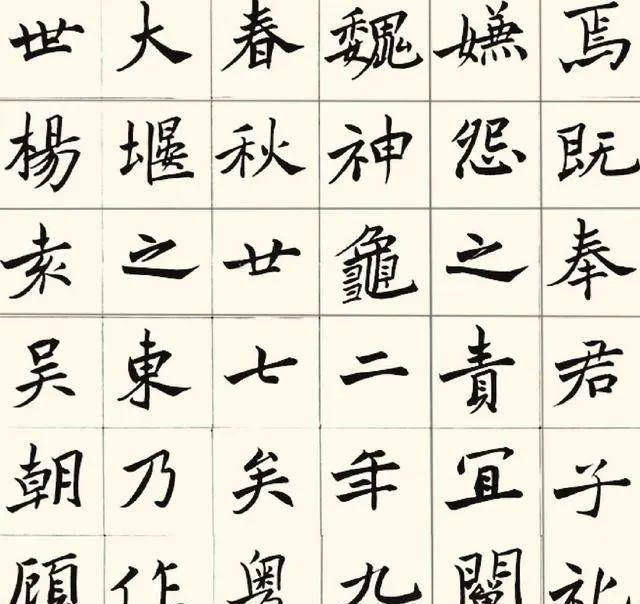 焉既奉君子礼
嫌怨之責宜
魏神龜二年九
春秋廿七矣粤
大堰之東乃作
世楊袁吴朝顧